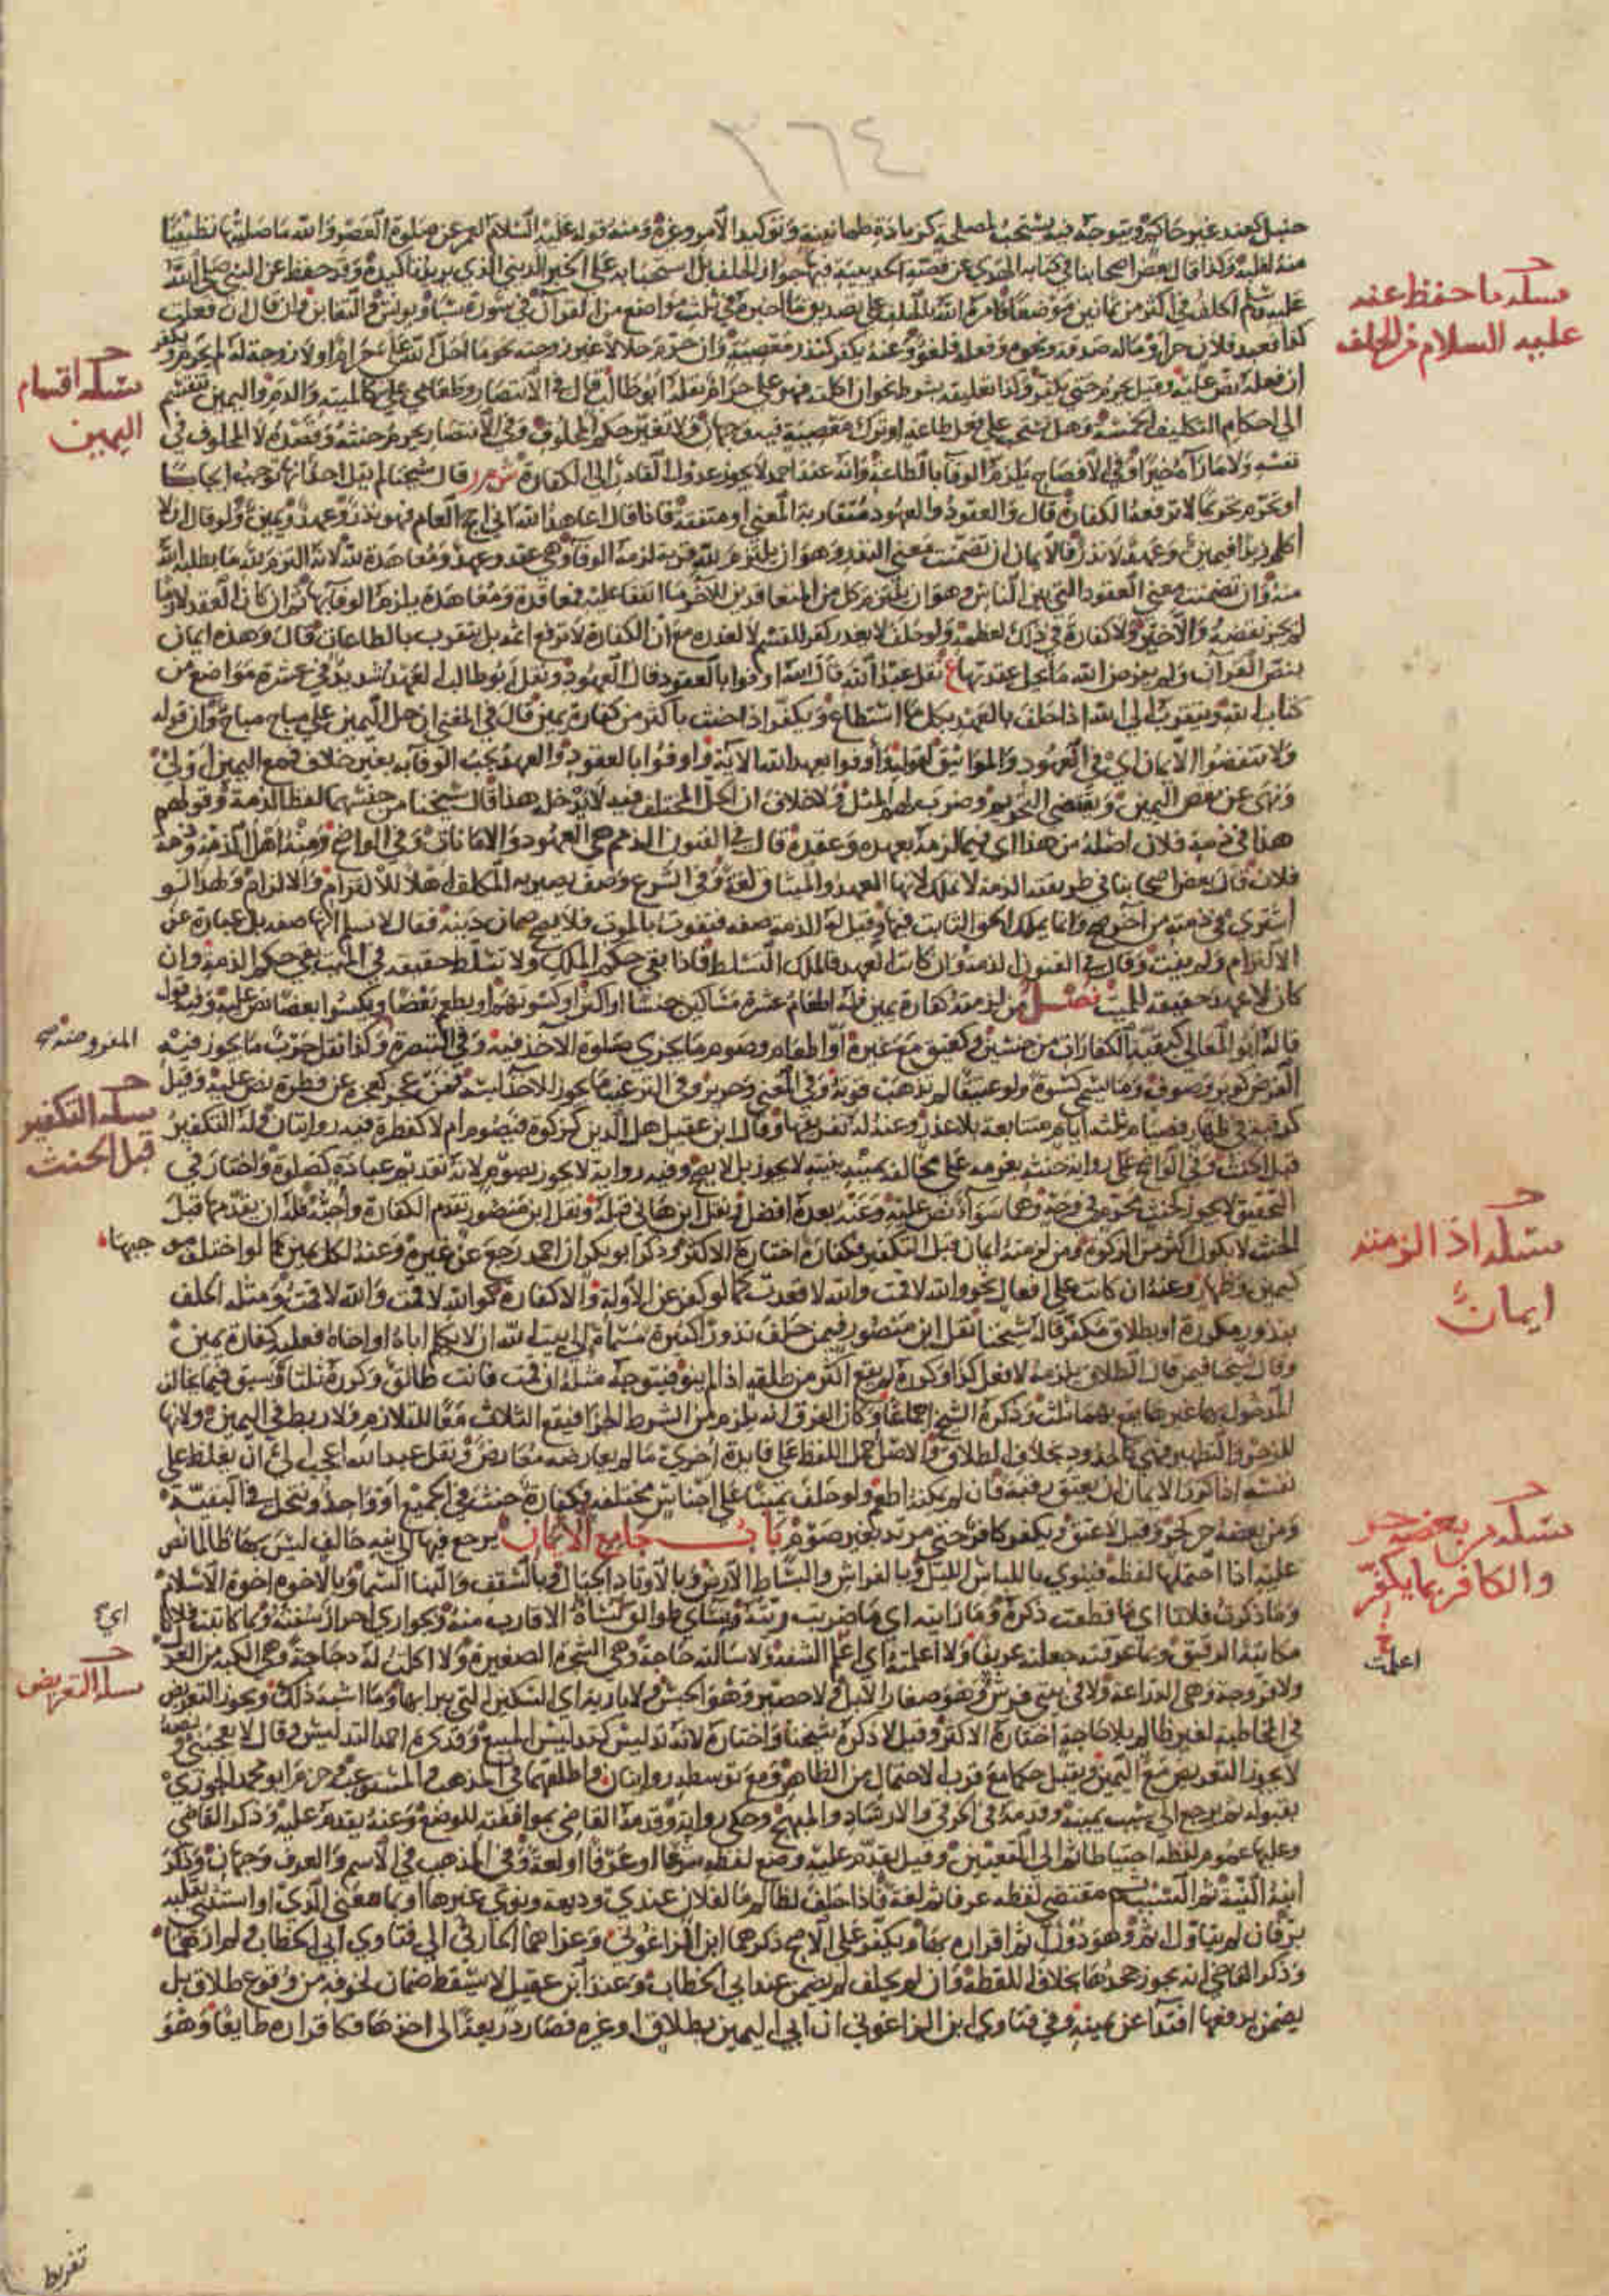 ٣٦٤
حنبل كعند غير حاكم ويتوجه فيه يستحب لمصلحة كزيادة طمأنينة وتوكيد الأمر وغيره ومنه قوله عليه السلام لعمر عن صلوة العصر والله ما صليتها تطييبا
منه لقلبه وكذا قال بعض اصحابنا في كتابه الهدي عن قصة الحديبية فيها جواز الحلف بل استحبابه على الخير الديني الذي يريد تاكيده وقد حفظ عن النبي صلى الله
عليه وسلم الحلف في اكثر من ثمانين موضعا وامره الله بالحلف على تصديق ما اخبر به في ثلث مواضع من القرآن في سورة سبا ويونس والتغابن وان قال ان فعلت
كذا فعبد فلان حر او ماله صدقة ونحوه وفعله فلغو وعنه يكفر كنذر معصية وان حرم حلالا غير زوجته نحو ما احل الله علي حرام او لا زوجة له لم يحرم ويكفر
ان فعله نص عليه وقيل يحرم حتى يكفر وكذا تعليقه بشرط نحو ان اكلته فهو علي حرام نقله ابو طالب قال في الانتصار وطعامي علي كالميتة والدم واليمين تنقسم
الى احكام التكليف الخمسة وهل تستحب على فعل طاعة او ترك معصية فيه وجهان ولا تغير حكم المحلوف وفي الانتصار يحرم حنثه وقصده لا المحلوف في
نفسه ولا ما رآه خيرا وفي الافصاح يلزم الوفا بالطاعة وانه عند احمد لا يجوز عدول القادر الى الكفارة قال شيخنا لم يقل احد انها توجب ايجابا
او تحرم تحريما لا ترفعه الكفارة قال والعقود والعهود متقاربة المعنى او متفقة فاذا قال اعاهد الله اني احج العام فهو نذر وعهد ويمين ولو قال ان لا
اكلم زيدا فيمين وعهد لا نذر فالايمان ان تضمنت معنى النذر وهو ان يلتزم لله قربة لزمه الوفا وهي عقد وعهد ومعاهدة لله لانه التزم لله ما يطلبه الله
منه وان تضمنت معنى العقود التي بين الناس وهو ان يلتزم كل من المتعاقدين للآخر ما اتفقا عليه فمعاقدة ومعاهدة يلزم الوفا بها ثم ان كان العقد لازما
لم يجز نقضه والا خير ولا كفارة في ذلك لعظمه ولو حلف لا يغدر كفر للقسم لا لغدره مع ان الكفارة لا ترفع اثمه بل يتقرب بالطاعات قال وهذه ايمان
بنص القرآن ولم يعرض الله ما يحل عقدتها نقل عبد الله قال الله اوفوا بالعقود قال العهود ونقل ابو طالب العهد شديد في عشرة مواضع من
كتاب الله ويتقرب الى الله اذا حلف بالعهد بكل ما استطاع ويكفر اذا حنث باكثر من كفارة يمين قال في المغني ان حل اليمين على مباح مباح وان قوله
ولا تنقضوا الايمان اي في العهود والمواثيق لقوله واوفوا بعهد الله الآية واوفوا بالعقود والعهد يجب الوفا به بغير خلاف فمع اليمين اولى
ونهى عن نقض اليمين ويقتضي التحريم وضرب لهم المثل ولا خلاف ان الحل المختلف فيه لا يدخل هذا قال شيخنا من جنسهما لفظ الذمة وقولهم
هذا في ذمة فلان اصله من هذا اي فيما لزمه بعهده وعقده قال في الفنون الذمم هي العهود والامانات وفي الواضح ومنه اهل الذمة وذمة
فلان قال بعض اصحابنا في طريقته الذمة لا تملك لانها العهد والميثاق لغة وفي الشرع وصف يصير به المكلف اهلا للالزام والالتزام ولهذا لو
اشترى في ذمته من آخر صح وانما يملك الحق الثابت فيها وقيل له الذمة صفة فتفوت بالموت فلا يصح ضمان دينه فقال لا نسلم انها صفة بل عبارة عن
الالتزام ولم يفت وقال في الفنون الذمة وان كانت العهد فالملك التسلط فاذا بقي حكم الملك ولا تسلط حقيقة في الميت بقي حكم الذمة وان
كان لا عهد حقيقة للميت فصل من لزمته كفارة يمين فله اطعام عشرة مساكين جنسا او اكثر او كسوتهم او يطعم بعضا ويكسوا بعضا نص عليه وفيه قول
قاله ابو المعالي كبقية الكفارات من جنسين وكعتق مع غيره او اطعام وصوم ما يجزي صلوة الآخذ فيه وفي التبصرة وكذا نقل حرب ما يجوز فيه
الفرض كوبر وصوف وما يسمى كسوة ولو عتيقا لم تذهب قوته وفي المغني وحرير وفي الترغيب ما يجوز للآخذ لبسه فمن عجز كعجزه عن فطرة نص عليه وقيل
كرقبة في ظهار فصيام ثلثة ايام متتابعة بلا عذر وعنه له تفريقها وقال ابن عقيل هل الدين كزكوة فيصوم ام لا كفطرة فيه روايتان وله التكفير
قبل الحنث وفي الواضح على رواية حنثه بعزمه على مخالفة يمينه بنيته لا يجوز بل لا يصح وفيه رواية لا يجوز بصوم لانه تقديم عبادة كصلوة واختار في
التحقيق لا يجوز كحنث محرم في وجه وهما سواء نص عليه وعنه بعده افضل ونقل ابن هاني قبله ونقل ابن منصور تقدم الكفارة واجبة فله ان يقدمها قبل
الحنث لا يكون اكثر من الزكوة ومن لزمته ايمان قبل التكفير فكفارة اختاره الاكثر وذكر ابو بكر ان احمد رجع عن غيره وعنه لكل يمين كما لو اختلف موجبها
كيمين وظهار وعنه ان كانت على افعال نحو والله لا قمت والله لا قعدت كما لو كفر عن الاولة والا كفارة كوالله لا قمت والله لا قمت ومثله الحلف
بنذور مكررة او بطلاق مكفر قاله شيخنا نقل ابن منصور فيمن حلف نذورا كثيرة مسماة الى بيت الله ان لا يكلم اباه او اخاه فعليه كفارة يمين
وقال شيخنا فيمن قال الطلاق يلزمه لافعل كذا وكرره لم يقع اكثر من طلقة اذا لم ينو فيتوجه مثله ان قمت فانت طالق وكرره ثلثا وسبق فيما يخالف
المدخول بها غيرها يقع بهما ثلث وذكره الشيخ اجماعا وكان الفرق انه يلزم من الشرط الجزا فيقع الثلاث معا للتلازم ولا ربط في اليمين ولانها
للزجر والتطهير فهي كالحدود بخلاف الطلاق والاصل حمل اللفظ على فايدة اخرى ما لم يعارضه معارض ونقل عبد الله اعجب الي ان يغلظ على
نفسه اذا كرر الايمان ان يعتق رقبة فان لم يمكنه اطعم ولو حلف يمينا على اجناس مختلفة فكفارة حنث في الجميع او واحد وتنحل في البقية
ومن بعضه حر كحر وقيل لا عتق ويكفر كافر حتى مرتد بغير صوم باب جامع الايمان يرجع فيها الى نية حالف ليس بها ظالما نص
عليه اذا احتملها لفظه فينوي باللباس الليل وبالفراش والبساط الارض وبالاوتاد الجبال وبالسقف والبنا السما وبالاخوة اخوة الاسلام
وما ذكرت فلانا اي ما قطعت ذكره وما رايته اي ما ضربت ريته وبنساي طوالق نساه الاقارب منه وبجواري احرار سفنه وبما كاتبت فلانا
مكاتبة الرقيق وبما عرفته جعلته عريفا ولا اعلمته اي اعلم الشفة ولا سالته حاجة وهي الشجرة الصغيرة ولا اكلت له دجاجة وهي الكبة من الغزل
ولا فروجة وهي الدراعة ولا في بيتي فرش وهو صغار الابل ولا حصير وهو الحبس ولا بارية اي السكين التي يبرا بها وما اشبه ذلك ويجوز التعريض
في المخاطبة لغير ظالم بلا حاجة اختاره الاكثر وقيل لا ذكره شيخنا واختاره لانه تدليس كتدليس المبيع وقد كره احمد التدليس وقال لا يعجبني ونصه
لا يجوز التعريض مع اليمين ويقبل حكما مع قرب الاحتمال من الظاهر ومع توسطه روايتان واطلقهما في المذهب والمستوعب وجزم ابو محمد الجوزي
بقبوله ثم يرجع الى سبب يمينه وقدمه في الخرقي والارشاد والمبهج وحكي رواية وقدمه القاضي بموافقته للوضع وعنه يقدم عليه وذكر القاضي
وعليها عموم لفظه احتياطا ثم الى التعيين وقيل يقدم عليه وضع لفظه شرعا او عرفا او لغة وفي المذهب في الاسم والعرف وجهان وذكر
ابنه النية ثم السبب ثم مقتضى لفظه عرفا ثم لغة فاذا حلف لظالم ما لفلان عندي وديعة ونوى غيرها او بما معنى الذي او استثنى بقلبه
بر فان لم يتاول اثم وهو دون اثم اقراره بها ويكفر على الاصح ذكرهما ابن الزاغوني وعزاهما الحارثي الى فتاوي ابي الخطاب ولم ارهما
وذكر القاضي انه يجوز جحدها بخلاف اللقطة وان لم يحلف لم يضمن عند ابي الخطاب وعند ابن عقيل لا يسقط ضمان لخوفه من وقوع طلاق بل
يضمن بدفعها افتداء عن يمينه وفي فتاوي ابن الزاغوني ان ابى اليمين بطلاق او غيره فصار ذريعة الى اخذها فكاقراره طايعا وهو
مسئلة ما حفظ عنه
عليه السلام من الحلف
مسئلة اقسام
اليمين
مسئلة التكفير
قبل الحنث
مسئلة اذا لزمته
ايمان
مسئلة من بعضه حر
والكافر بما يكفر
اعلمت
مسئلة التعريض
تفريط